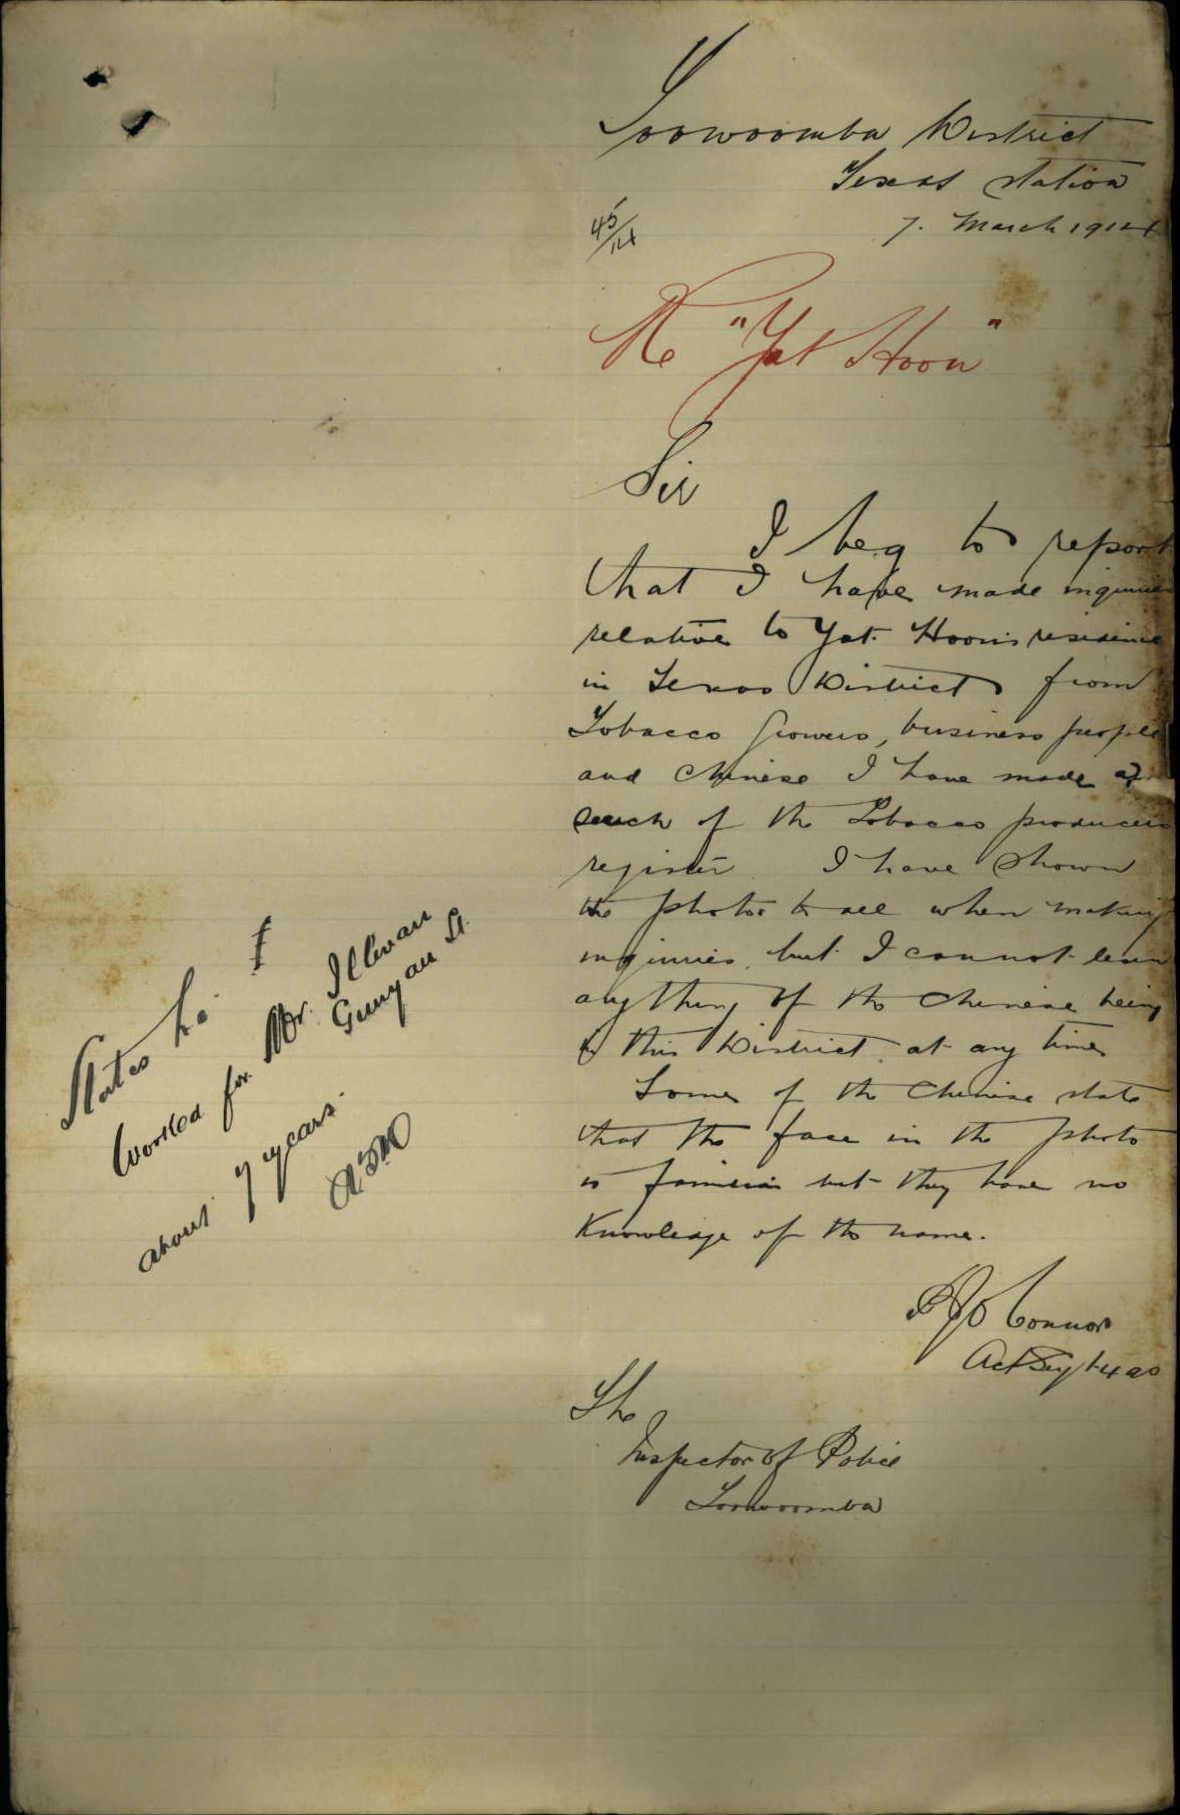 Toowoomba District
Texas Station
7. March 1914
45/14
Re "Yat Hoon"
Sir
I beg to report
that I have made inquiries
relative to Yat Hoon's residence
in Texas District from
Tobacco Growers, business people
and Chinese I have made a
search of the Tobacco producers
register. I have shown
the photos to all when making
inquiries, but I cannot learn
anything of the Chinese being
in this District at any time
Some of the Chinese state
that the face in the photo
is familiar but they have no
Knowledge of the name.
O'Connor
Act Sergt 420
The
Inspector of Police
Toowoomba
States he
worked for Mr. Illevan
Gunyan St.
about 7 years.